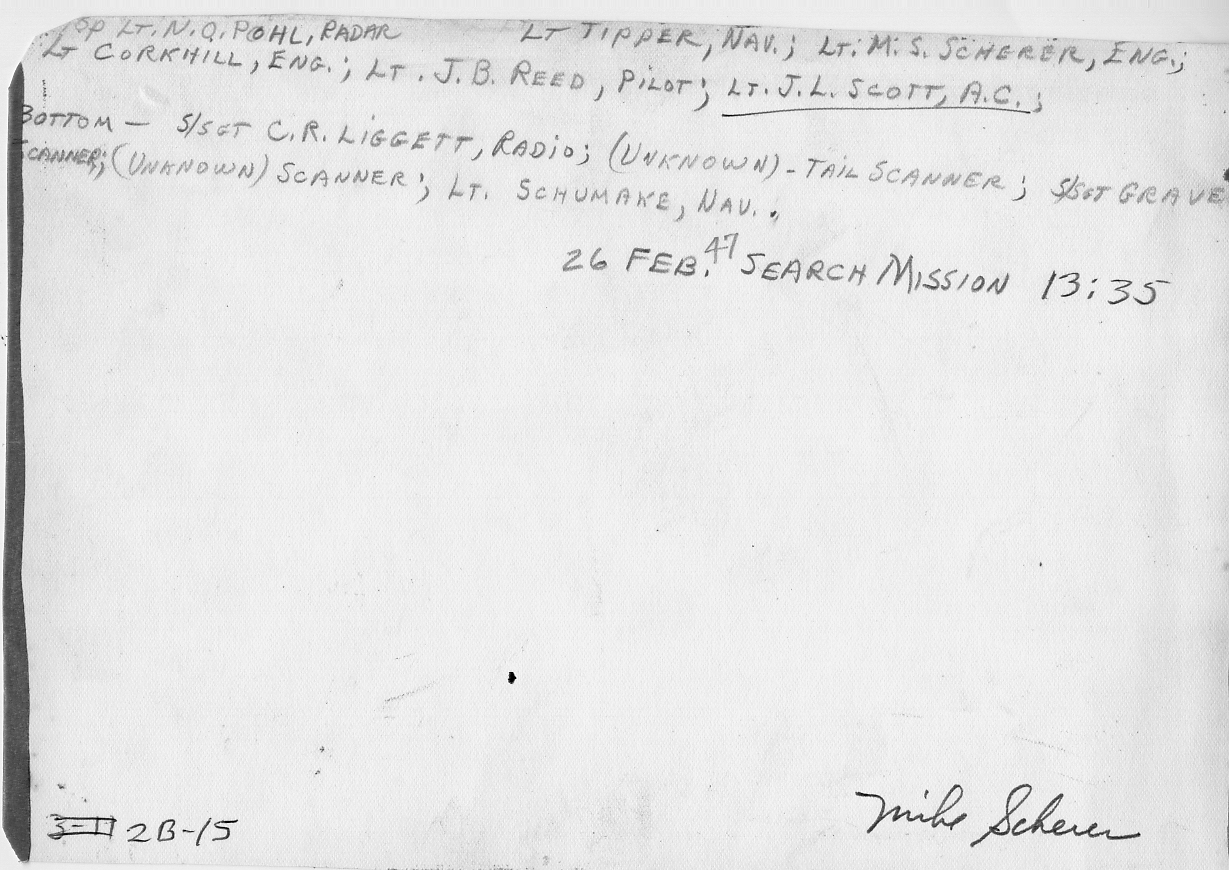 OP LT. N.Q. POHL, RADAR LT TIPPER, NAV.; LT. M.S. SCHERER, ENG.;
LT CORKHILL, ENG.; LT. J.B. REED, PILOT; LT. J.L. SCOTT, A.C.;
BOTTOM — S/SGT C.R. LIGGETT, RADIO; (UNKNOWN) - TAIL SCANNER; S/SGT GRAVE
SCANNER; (UNKNOWN) SCANNER; LT. SCHUMAKE, NAV.
26 FEB. 47 SEARCH MISSION 13:35
2B-15
Mike Scherer